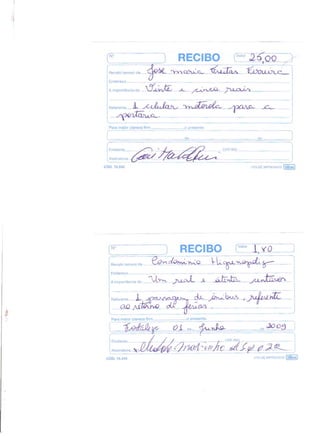 Nº RECIBO Valor 25,00
Recebi(emos) de José maria Freitas Ferreira
Endereço
A importância de Vinte e cinco reais
Referente 1 celular motorola para a
portaria
Para maior clareza firm o presente
de de
Emitente CPF/RG
Assinatura
Nº RECIBO Valor 1,80
Recebi(emos) de Condominio Higienopolis
Endereço
A importância de Um real e oitenta centavos
Referente 1 passagem de ônibus, referente
ao retorno de férias.
Para maior clareza firm o presente
Fortaleza 01 de junho de 2009
Emitente CPF/RG
Assinatura